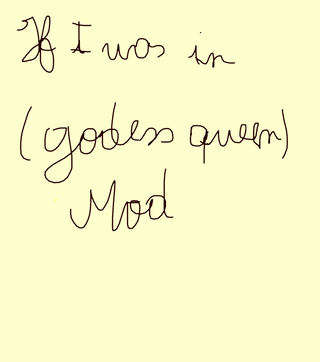 If I was in
(godess queen)
Mod